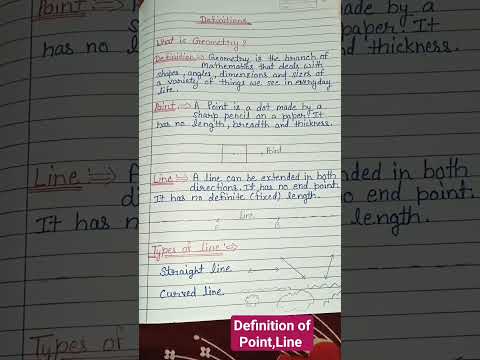 Definitions
What is Geometry?
Definition:- Geometry is the branch of
mathematics that deals with
shapes, angles, dimensions and sizes of
a variety of things we see in everyday
life.
Point:- A Point is a dot made by a
sharp pencil on a paper. It
has no length, breadth and thickness.
. Point
Line:- A line can be extended in both
directions. It has no end point.
It has no definite (fixed) length.
Line
Types of line:-
Straight line
Curved line
Definition of
Point,Line